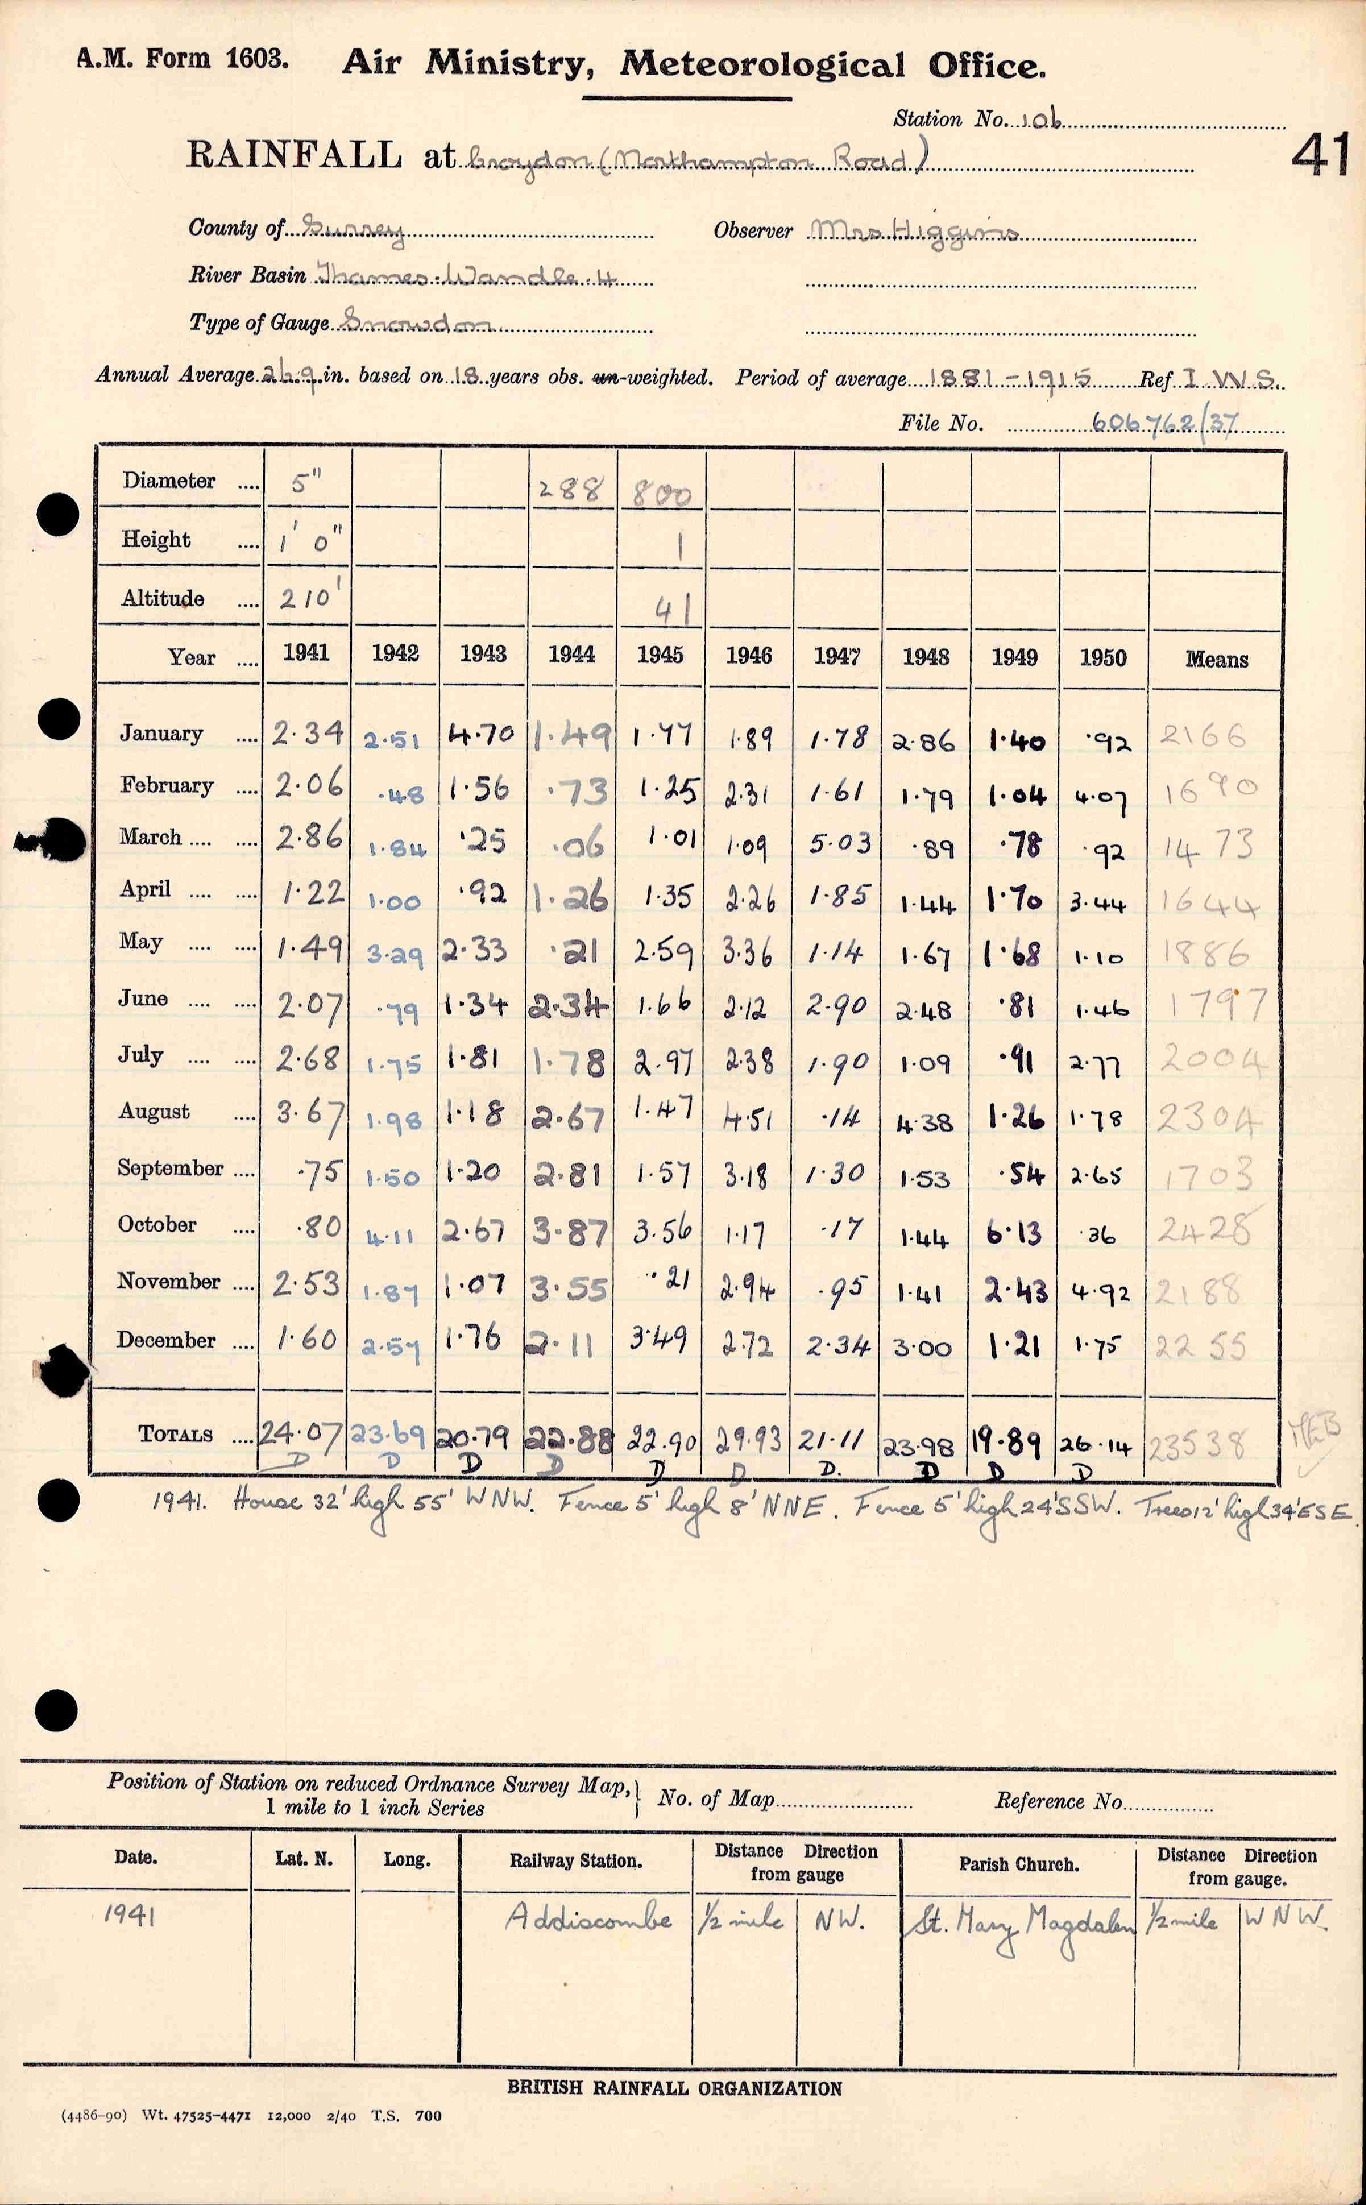 A.M. Form 1603. Air Ministry, Meteorological Office.
Station No. 106
41
RAINFALL at Croydon (Northampton Road)
County of Surrey Observer Mrs Higgins
River Basin Thames: Wandle. 4
Type of Gauge Snowdon
Annual Average 26.9 in. based on 18 years obs. un-weighted. Period of average 1881-1915 Ref I.W.S.
File No. 606762/37
Diameter .... 5" 288 800
Height .... 1' 0" 1
Altitude .... 210' 41
Year .... 1941 1942 1943 1944 1945 1946 1947 1948 1949 1950 Means
January .... 2.34 2.51 4.70 1.49 1.77 1.89 1.78 2.86 1.40 .92 2166
February .... 2.06 .48 1.56 .73 1.25 2.31 1.61 1.79 1.04 4.07 1690
March .... .... 2.86 1.84 .25 .06 1.01 1.09 5.03 .89 .78 .92 1473
April .... .... 1.22 1.00 .92 1.26 1.35 2.26 1.85 1.44 1.70 3.44 1644
May .... .... 1.49 3.29 2.33 .21 2.59 3.36 1.14 1.67 1.68 1.10 1886
June .... .... 2.07 .79 1.34 2.34 1.66 2.12 2.90 2.48 .81 1.46 1797
July .... .... 2.68 1.75 1.81 1.78 2.97 2.38 1.90 1.09 .91 2.77 2004
August .... 3.67 1.98 1.18 2.67 1.47 4.51 .14 4.38 1.26 1.78 2304
September .... .75 1.50 1.20 2.81 1.57 3.18 1.30 1.53 .54 2.65 1703
October .... .80 4.11 2.67 3.87 3.56 1.17 .17 1.44 6.13 .36 2428
November .... 2.53 1.87 1.07 3.55 .21 2.94 .95 1.41 2.43 4.92 2188
December .... 1.60 2.57 1.76 2.11 3.49 2.72 2.34 3.00 1.21 1.75 2255
TOTALS .... 24.07 23.69 20.79 22.88 22.90 29.93 21.11 23.98 19.89 26.14 23538 MEB
D D D D D D D. D D D
1941. House 32' high 55' WNW. Fence 5' high 8' NNE. Fence 5' high 24' SSW. Trees 12' high 34' ESE.
Position of Station on reduced Ordnance Survey Map, 1 mile to 1 inch Series No. of Map Reference No.
Date. Lat. N. Long. Railway Station. Distance Direction from gauge Parish Church. Distance Direction from gauge.
1941 Addiscombe ½ mile NW. St. Mary Magdalen ½ mile WNW.
BRITISH RAINFALL ORGANIZATION
(4486-90) Wt. 47525-4471 12,000 2/40 T.S. 700